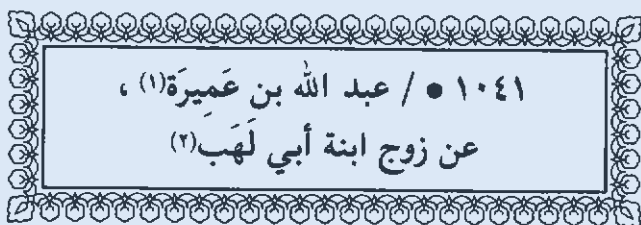 ١٠٤١ • / عبد الله بن عَمِيرَة(١) ،
عن زوج ابنة أبي لَهَب(٢)